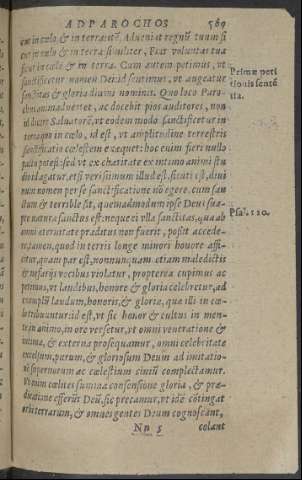 AD PAROCHOS 589
cut in cælo & in terra: item, Adueniat regnũ tuum si
cut in cælo & in terra similiter, Fiat voluntas tua
sicut in cælo & in terra. Cum autem petimus, vt
sanctificetur nomen Dei: id sentimus, vt augeatur
sanctitas & gloria diuini nominis. Quo loco Paro-
chus animaduertet, ac docebit pios auditores, non
id dicere Saluatorẽ, vt eodem modo sanctificetur in
terra quo in cœlo, id est, vt amplitudine terrestris
sanctificatio cœlestem exæquet: hoc enim fieri nullo
pacto potest: sed vt ex charitate ex intimo animi stu
dio id agatur. etsi verissimum illud est, sicuti est, diui
num nomen per se sanctificatione nõ egere, cum san
ctum & terribile sit, quemadmodum ipse Deus sua-
pte natura sanctus est: neque ei vlla sanctitas, qua ab
omni æternitate præditus non fuerit, possit accede-
re, tamen, quod in terris longe minori honore affi-
citur, quam par est, nonnunquam etiam maledictis
& nefarijs vocibus violatur, propterea cupimus ac
petimus, vt laudibus, honore & gloria celebretur, ad
exemplũ laudum, honoris, & gloriæ, quæ illi in cœ-
lo tribuuntur: id est, vt sic honor & cultus in men-
te, in animo, in ore versetur, vt omni veneratione &
intima, & externa prosequamur, omni celebritate
excelsum, purum, & gloriosum Deum ad imitatio-
nẽ supernorum ac cælestium ciuiũ complectamur.
Vt enim cælites summa consensione gloria, & præ-
dicatione efferũt Deũ, sic precamur, vt idẽ cõtingat
orbi terrarum, & omnes gentes Deum cognoscant,
Nn 5 colant
Primæ peti
tionis sentẽ
tia.
Psa. 110.